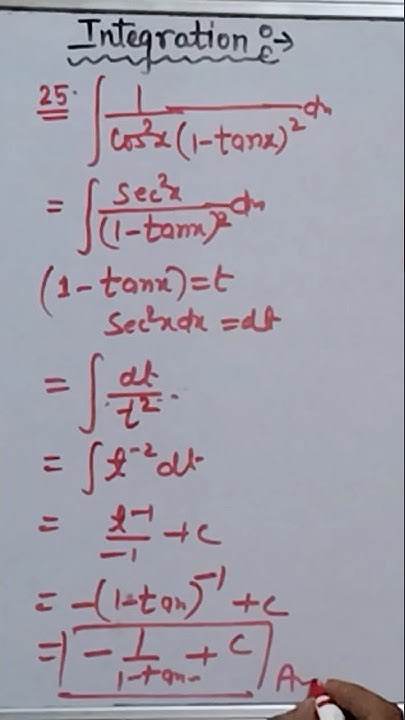 Integration :→
25. ∫ 1/(cos²x (1-tanx)²) dx
= ∫ sec²x/(1-tanx)² dx
(1-tanx)=t
sec²xdx = dt
= ∫ dt/t²
= ∫ t⁻² dt
= t⁻¹/-1 + c
= -(1-tanx)⁻¹ + c
= - 1/(1-tanx) + c